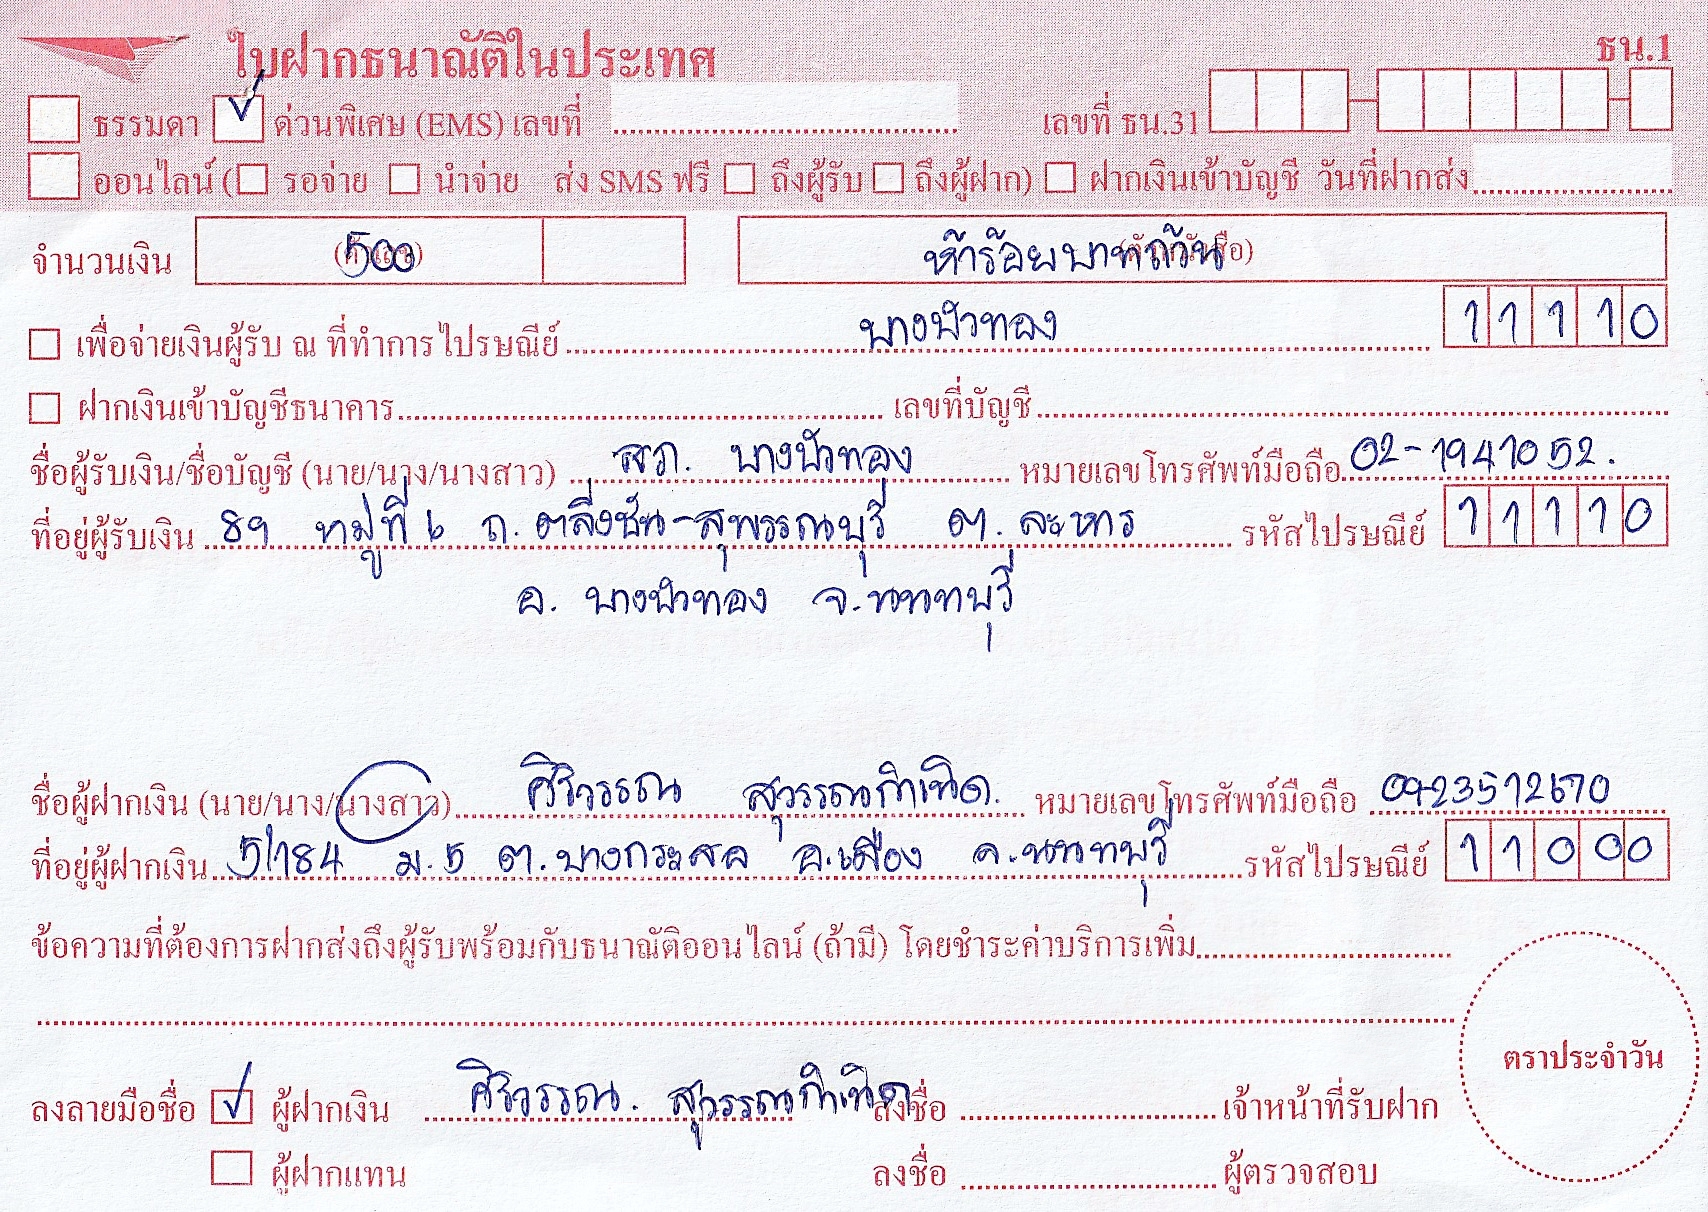 ใบฝากธนาณัติในประเทศ ธน.1
ธรรมดา ด่วนพิเศษ (EMS) เลขที่ เลขที่ ธน.31
ออนไลน์ ( รอจ่าย นำจ่าย ส่ง SMS ฟรี ถึงผู้รับ ถึงผู้ฝาก) ฝากเงินเข้าบัญชี วันที่ฝากส่ง
จำนวนเงิน 500 ห้าร้อยบาทถ้วน
เพื่อจ่ายเงินผู้รับ ณ ที่ทำการไปรษณีย์ บางบัวทอง 11110
ฝากเงินเข้าบัญชีธนาคาร เลขที่บัญชี
ชื่อผู้รับเงิน/ชื่อบัญชี (นาย/นาง/นางสาว) สภ. บางบัวทอง หมายเลขโทรศัพท์มือถือ 02-1941052.
ที่อยู่ผู้รับเงิน 89 หมู่ที่ 6 ถ. ตลิ่งชัน-สุพรรณบุรี ต. ละหาร รหัสไปรษณีย์ 11110
อ. บางบัวทอง จ.นนทบุรี
ชื่อผู้ฝากเงิน (นาย/นาง/นางสาว) ศิริวรรณ สุวรรณกำเนิด. หมายเลขโทรศัพท์มือถือ 0923512670
ที่อยู่ผู้ฝากเงิน 5/184 ม.5 ต.บางกระสอ อ.เมือง จ.นนทบุรี รหัสไปรษณีย์ 11000
ข้อความที่ต้องการฝากส่งถึงผู้รับพร้อมกับธนาณัติออนไลน์ (ถ้ามี) โดยชำระค่าบริการเพิ่ม
ตราประจำวัน
ลงลายมือชื่อ ผู้ฝากเงิน ศิริวรรณ. สุวรรณกำเนิด ลงชื่อ เจ้าหน้าที่รับฝาก
ผู้ฝากแทน ลงชื่อ ผู้ตรวจสอบ